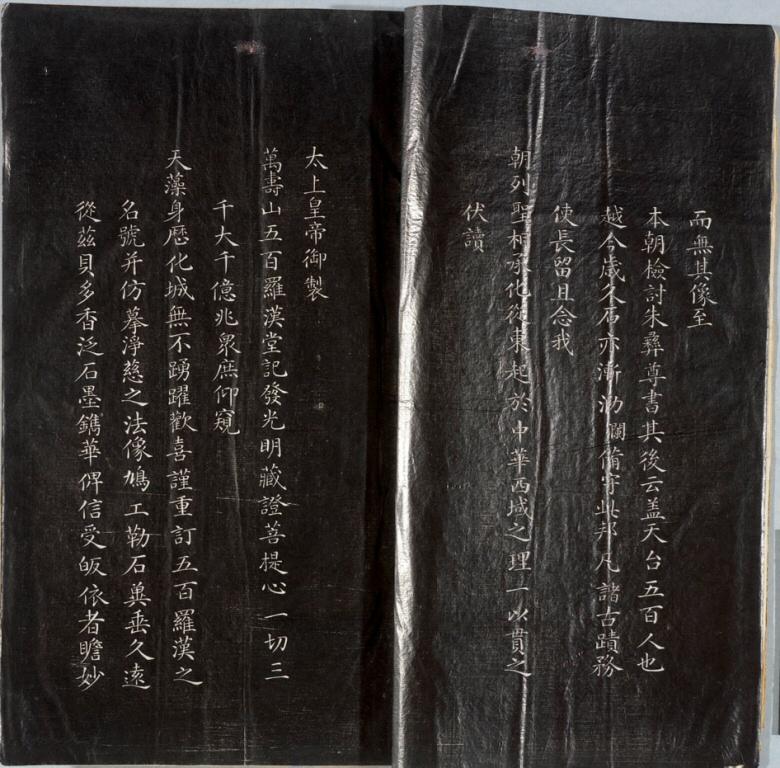 而無其像至
本朝檢討朱彝尊書其後云盖天台五百人也
越今歲久石亦漸泐闌備守此邦凡諸古蹟務
使長留且念我
朝列聖相承化從東起於中華西域之理一以貫之
伏讀
太上皇帝御製
萬壽山五百羅漢堂記發光明藏證菩提心一切三
千大千億兆衆庶仰窺
天藻身歷化城無不踴躍歡喜謹重訂五百羅漢之
名號并仿摹淨慈之法像鳩工勒石兾垂久遠
從兹貝多香泛石墨鐫華俾信受皈依者瞻妙